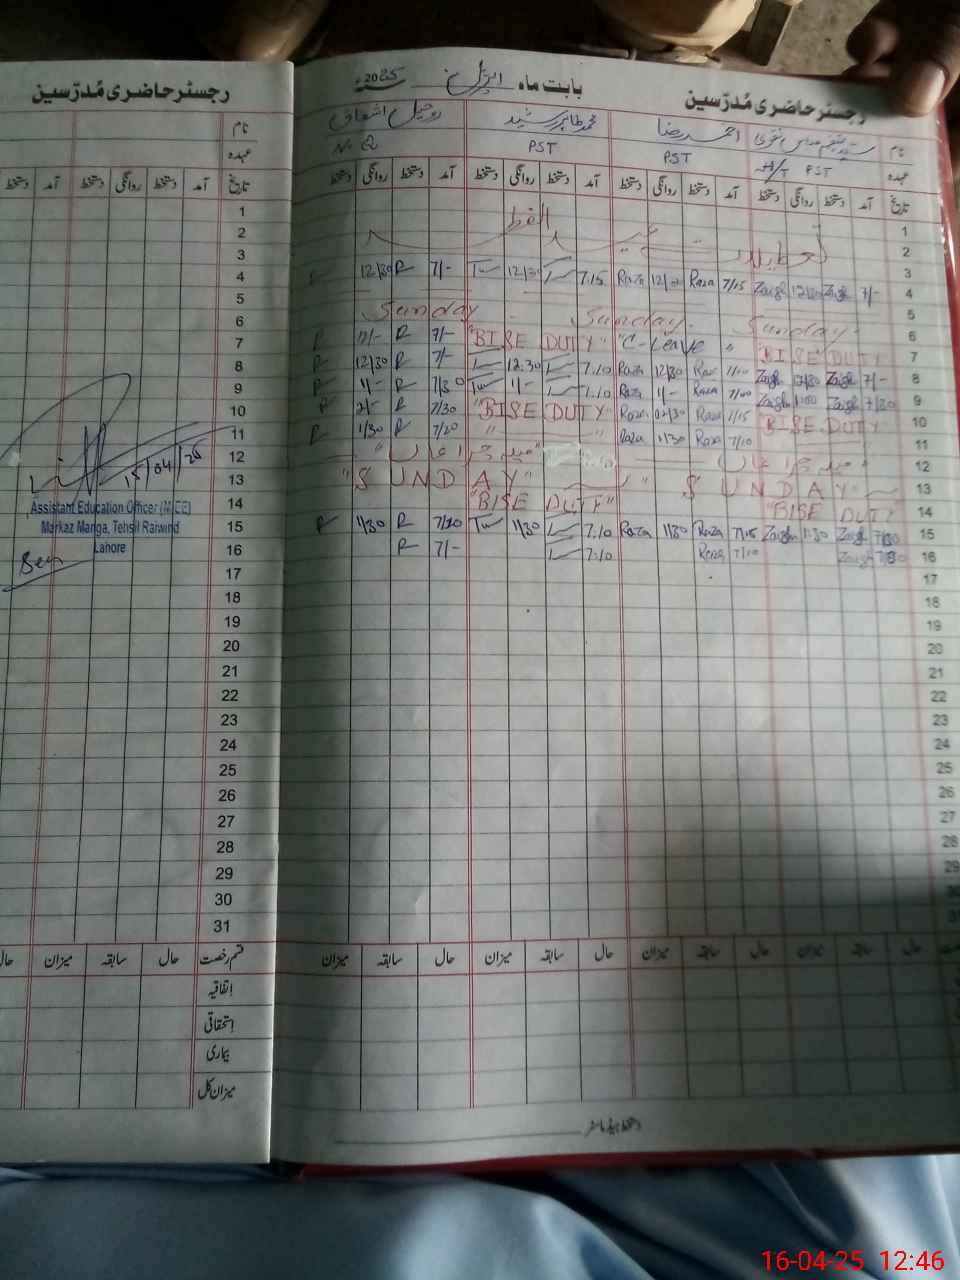 رجسٹر حاضری مُدرّسین
بابت ماہ اپریل 2025ء
رجسٹر حاضری مُدرّسین
نام احمد رضا محمد طاہر رشید روحیل اشفاق
عہدہ PST PST PST N.Q
تاریخ آمد دستخط روانگی دستخط آمد دستخط روانگی دستخط آمد دستخط روانگی دستخط آمد دستخط روانگی دستخط
1
2 تعطیلات عید الفطر
3
4 7/- Zaigh 12/30 Zaigh 7/15 Raza 12/30 Raza 7.15 12/30 7/- R 12/30
5
6 Sunday Sunday Sunday
7 "BISE DUTY" "C-Leave" "BISE DUTY" 7/- R R
8 7/- Zaigh 12/30 Zaigh 7/00 Raza 12/30 Raza 7.10 12.30 7/- R 12/30 R
9 7/30 Zaigh 1:00 Zaigh 7/00 Raza 1/- Raza 7.10 1/- 7/30 R 1/- R
10 BISE DUTY 7/15 Raza 12/30 Raza "BISE DUTY" 7/30 R R
11 7/10 Raza 1/30 Raza " " 7/20 R 1/30 R
12 میلہ چراغاں میلہ چراغاں
13 "SUNDAY" "SUNDAY"
14 "BISE DUTY" "BISE DUTY"
15 7/30 Zaigh 1:30 Zaigh 7/15 Raza 1/30 Raza 7:10 1/30 7/20 R 1/30 R
16 7/30 Zaigh 7/10 Raza 7:10 7/- R
17
18
19
20
21
22
23
24
25
26
27
28
29
30
31
حال سابقہ میزان حال سابقہ میزان حال سابقہ میزان حال سابقہ میزان
دستخط ہیڈ ماسٹر
نام
عہدہ
تاریخ آمد دستخط روانگی دستخط آمد دستخط
1
2
3
4
5
6
7
8
9
10
11
12
13
14
15
16
17
18
19
20
21
22
23
24
25
26
27
28
29
30
31
15/04/25
Assistant Education Officer (M-EE)
Markaz Manga, Tehsil Raiwind
Lahore
Seen
قسم رخصت حال سابقہ میزان حال
اتفاقیہ
استحقاقی
بیماری
میزان کل
16-04-25 12:46